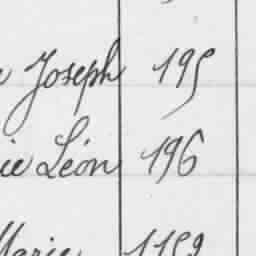 Joseph 195
ie Léon 196
Marie 1159